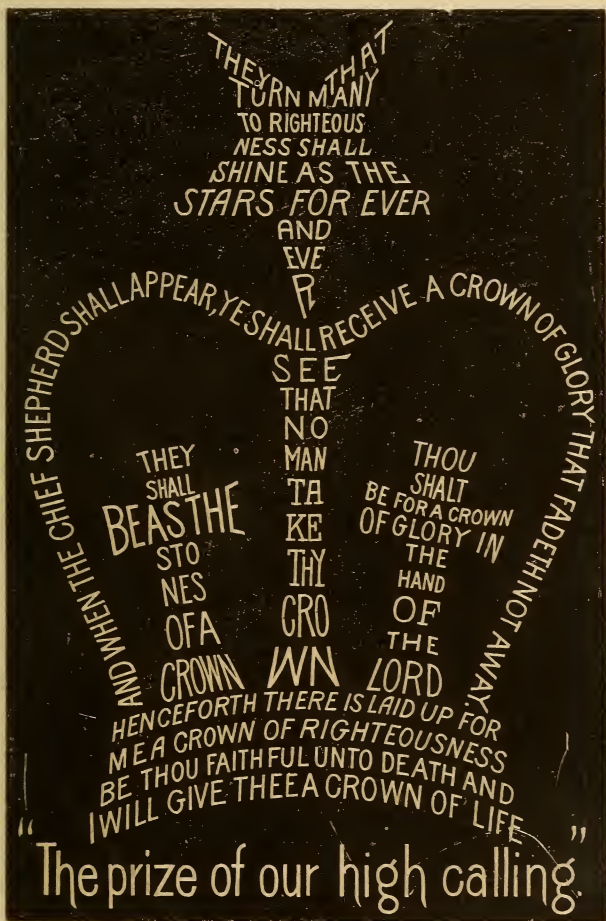 THEY THAT
TURN MANY
TO RIGHTEOUS
NESS SHALL
SHINE AS THE
STARS FOR EVER
AND
EVE
R
AND WHEN THE CHIEF SHEPHERD SHALL APPEAR, YE SHALL RECEIVE A CROWN OF GLORY THAT FADETH NOT AWAY.
SEE
THAT
NO
MAN
TA
KE
THY
CRO
WN
THEY
SHALL
BE AS THE
STO
NES
OF A
CROWN
THOU
SHALT
BE FOR A CROWN
OF GLORY IN
THE
HAND
OF
THE
LORD
HENCEFORTH THERE IS LAID UP FOR
ME A CROWN OF RIGHTEOUSNESS
BE THOU FAITHFUL UNTO DEATH AND
I WILL GIVE THEE A CROWN OF LIFE
"The prize of our high calling."